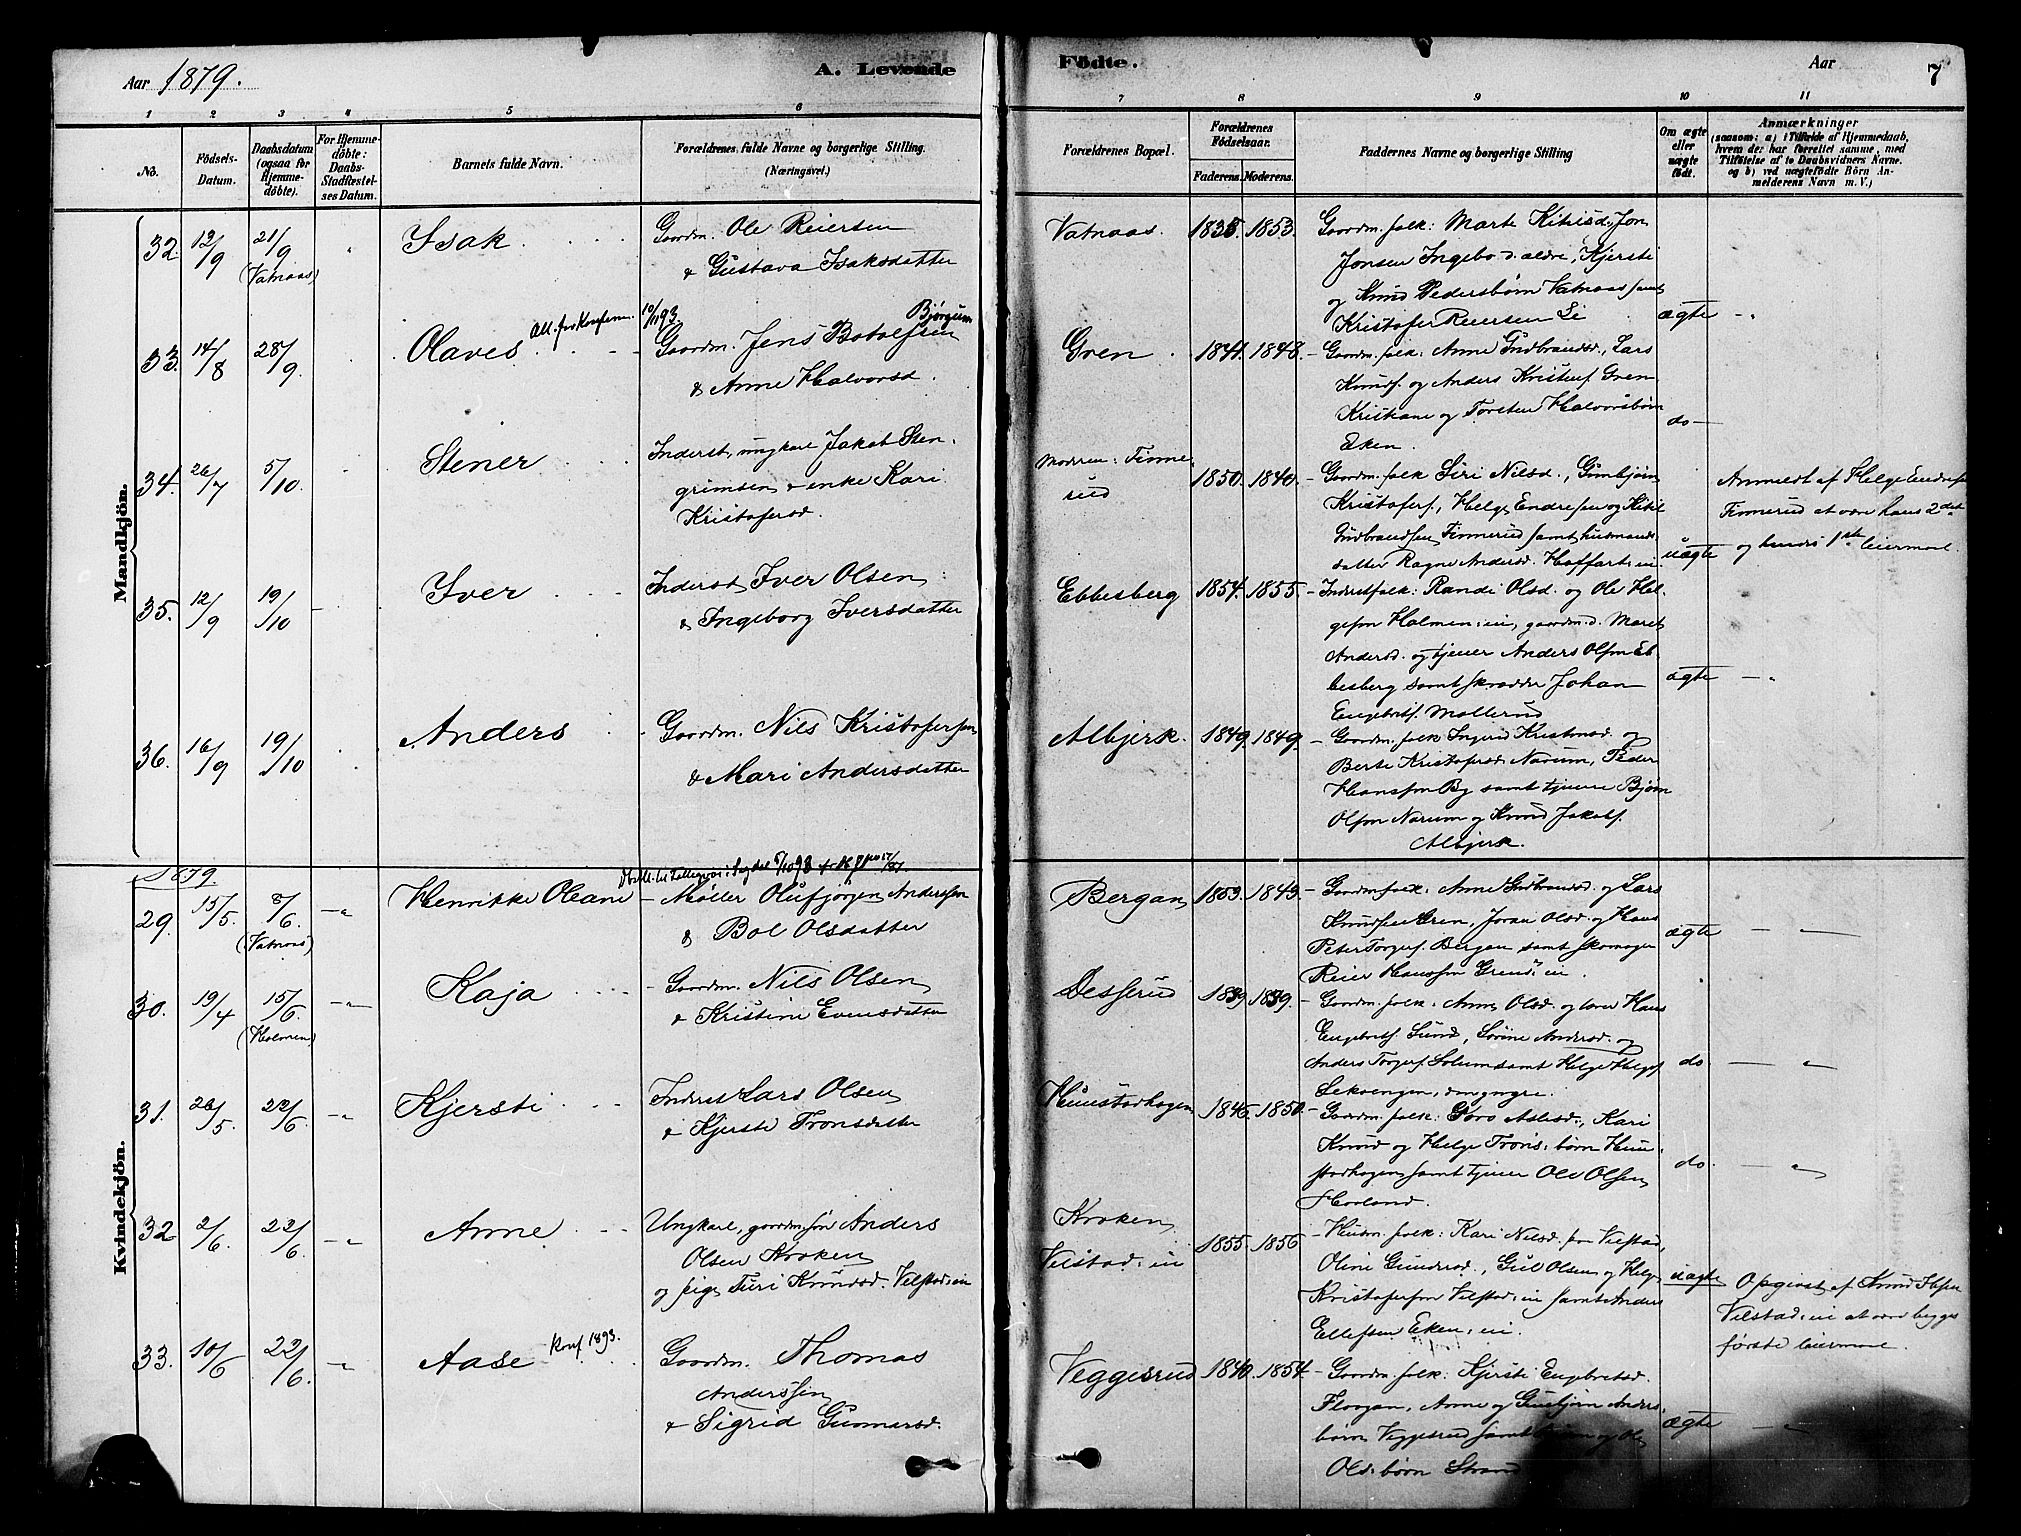 Aar 1879.
A. Levende
Födte.
Aar
7
1 2 3 4 5 6 7 8 9 10 11
No.
Födsels-Datum.
Daabsdatum (ogsaa for Hjemmedöbte).
For Hjemmedöbte: Daabs-Stadfæstelses Datum.
Barnets fulde Navn.
Forældrenes fulde Navne og borgerlige Stilling.
(Næringsvei.)
Forældrenes Bopæl.
Forældrenes Födselsaar.
Faderens. Moderens.
Faddernes Navne og borgerlige Stilling
Om ægte eller uægte födt.
Anmærkninger
(saasom: a) i Tilfælde af Hjemmedaab, hvem der har forrettet samme, med Tilföielse af to Daabsvidners Navne. og b) ved uægtefödte Börn Anmelderens Navn m. V.)
Mandkjön.
32. 12/9 21/9 (Vatnaas) Isak
Gaardm. Ole Reiersen
& Gustava Isaksdatter
Vatnaas. 1835. 1853.
Gaardm. folk: Marte Kitilsd., Jon
Jonsen Ingebo d. ældre, Kjersti
og Knud Pedersbørn Vatnaas samt
Kristofer Reiersen Li
ægte
33. 14/8 28/9 Olaves
10/11 93.
Bjørgum
Gaardm. Jens Botolfsen
& Anne Halvorsd.
Gren. 1841. 1848.
Gaardm. folk: Anne Gudbrandsd., Lars
Knuds. og Anders Kristens. Gren
Kristiane og Torsten Halvorsbørn
Eken.
do
34. 26/7 5/10 Stener
Inderst, ungkarl Jakob Sten-
grimsen & enke Kari
Kristofersd.
Modren: Finne-
rud
1850. 1840.
Gaardm. folk Siri Nilsd., Gunbjørn
Kristofers., Helge Endresen og Kitil
Gudbrandsen Finnerud samt husmands-
datter Ragne Andersd. Hoffart: ei.
uægte
Anmeldt af Helge Endres.
Finnerud at være hans 2det
og hendes 1ste leiermaal.
35. 12/9 19/10 Iver
Inderst Iver Olsen
& Ingeborg Iversdatter
Ebbesberg 1854. 1855.
Inderstfolk: Randi Olsd. og Ole Hel-
gesen Holmen: ei, gaardm. d. Maret
Andersd. og tjener Anders Olsen Eb-
besberg samt skrædder Johan
Engebrets. Mollerud
ægte
36. 16/9 19/10 Anders
Gaardm. Nils Kristofersen
& Mari Andersdatter
Albjerk. 1849. 1849.
Gaardm. folk Ingrid Kristensd. og
Berte Kristofersd. Narum, Peder
Hansen By samt tjener Bjørn
Olsen Narum og Knud Jakobs.
Albjerk.
Kvindekjön.
1879
29. 15/5 8/6 (Vatnaas) Henrikke Oleane
Møller Oluf Jørgen Anderssen
& Bol Olsdatter
Bergan 1853. 1843.
Gaardm. folk: Anne Gudbrandsd. og Lars
Knudsen Gren, Joran Olsd. og Hans
Peter Torgers. Bergan samt skomager
Reier Hanssen Grend: ei.
ægte
30. 19/4 15/6 (Holmen) Kaja
Gaardm. Nils Olsen
& Kristine Evensdatter
Desserud 1839. 1839.
Gaardm. folk: Anne Olsd. og lærer Hans
Engebrets. Sund, Sørine Andersd. og
Anders Torgers. Solum samt Helge Helges.
do
31. 26/5 22/6 Kjersti
Inderst Lars Olsen
& Kjersti Tronsdatter
Hunstadhagen 1845. 1850.
Gaardm. folk: Goro Aslesd., Kari
Knud og Helge Trons: børn Hun-
stadhagen samt tjener Ole Olsen
Horland.
do.
32 2/6. 22/6. Anne
Ungkarl, gaardm. søn Anders
Olsen Kroken
og pige Turi Knudsd. Vilstad: ei
Kroken
Vilstad: ei
1855. 1856
Husm. folk: Kari Nilsd. fra Vilstad,
Oline Gundersd., Gul Olsen og Helge
Kristofersen Vilstad: ei samt Anders
Ellefsen Eken: ei.
uægte
Opgivet af Knud
Vilstad: ei at være begges
første leiermaal.
33. 10/6 22/6. Aase Konf 1893.
Gaardm. Thomas
Anderssen
& Sigrid Gunnarsd.
Veggesrud 1840. 1854.
Gaardm. folk: Kjersti Engebretsd.
Florgan, Anne og Gunbjørn Anders-
børn Veggesrud samt
Ols: børn Strand
ægte